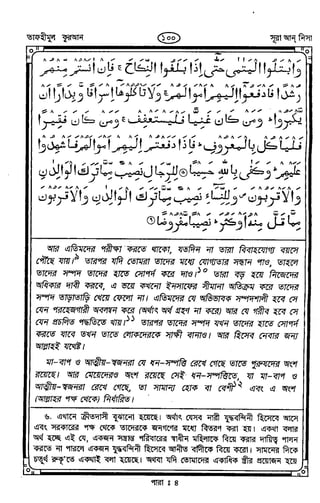 তাফহীমুল কুরআন
১০০
সূরা আন্ নিসা
وَابْتَلُوا الْيَتٰمٰى حَتّٰۤى اِذَا بَلَغُوا النِّكَاحَ ۚ فَاِنْ اٰنَسْتُمْ مِّنْهُمْ
رُشْدًا فَادْفَعُوْۤا اِلَيْهِمْ اَمْوَالَهُمْ ۚ وَلَا تَاْكُلُوْهَاۤ اِسْرَافًا وَّبِدَارًا اَنْ
يَّكْبَرُوْا ؕ وَمَنْ كَانَ غَنِيًّا فَلْيَسْتَعْفِفْ ۚ وَمَنْ كَانَ فَقِيْرًا
فَلْيَاْكُلْ بِالْمَعْرُوْفِ ؕ فَاِذَا دَفَعْتُمْ اِلَيْهِمْ اَمْوَالَهُمْ فَاَشْهِدُوْا
عَلَيْهِمْ ؕ وَكَفٰى بِاللّٰهِ حَسِيْبًا ۞ لِلرِّجَالِ نَصِيْبٌ مِّمَّا تَرَكَ الْوَالِدٰنِ
وَالْاَقْرَبُوْنَ ۪ وَلِلنِّسَآءِ نَصِيْبٌ مِّمَّا تَرَكَ الْوَالِدٰنِ وَالْاَقْرَبُوْنَ
مِمَّا قَلَّ مِنْهُ اَوْ كَثُرَ ؕ نَصِيْبًا مَّفْرُوْضًا ۞
আর এতিমদের পরীক্ষা করতে থাকো, যতদিন না তারা বিবাহযোগ্য বয়সে
পৌঁছে যায়।৯ তারপর যদি তোমরা তাদের মধ্যে যোগ্যতার সন্ধান পাও, তাহলে
তাদের সম্পদ তাদের হাতে সোপর্দ করে দাও।১০ তারা বড় হয়ে নিজেদের
অধিকার দাবী করবে, এ ভয়ে কখনো ইনসাফের সীমানা অতিক্রম করে তাদের
সম্পদ তাড়াতাড়ি খেয়ে ফেলো না। এতিমদের যে অভিভাবক সম্পদশালী হবে সে
যেন পরহেজগারী অবলম্বন করে (অর্থাৎ অর্থ গ্রহণ না করে) আর যে গরীব হবে সে
যেন প্রচলিত পদ্ধতিতে খায়।১১ তারপর তাদের সম্পদ যখন তাদের হাতে সোপর্দ
করতে যাবে তখন তাতে লোকদেরকে সাক্ষী বানাও। আর হিসেব নেবার জন্য
আল্লাহই যথেষ্ট।
মা-বাপ ও আত্মীয়-স্বজনরা যে ধন-সম্পত্তি রেখে গেছে তাতে পুরুষদের অংশ
রয়েছে। আর মেয়েদেরও অংশ রয়েছে সেই ধন-সম্পত্তিতে, যা মা-বাপ ও
আত্মীয়-স্বজনরা রেখে গেছে, তা সামান্য হোক বা বেশী১২ এবং এ অংশ
(আল্লাহর পক্ষ থেকে) নির্ধারিত।
৬. এখানে ক্রীতদাসী বুঝানো হয়েছে। অর্থাৎ যেসব নারী যুদ্ধবন্দিনী হিসেবে আসে
এবং সরকারের পক্ষ থেকে তাদেরকে জনগণের মধ্যে বিতরণ করা হয়। একথা বলার
অর্থ হচ্ছে এই যে, একজন সম্ভ্রান্ত পরিবারের স্বাধীন মহিলাকে বিয়ে করার দায়িত্ব পালন
করতে না পারলে একজন যুদ্ধবন্দিনী হিসেবে আনীত বাঁদীকে বিয়ে করো। সামনের দিকে
চতুর্থ রুকূ'তে একথাই বলা হয়েছে। অথবা যদি তোমাদের একাধিক স্ত্রীর প্রয়োজন হয়ে
পারা : ৪